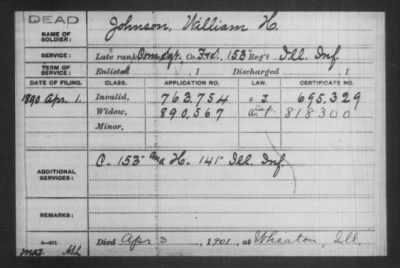 DEAD
NAME OF SOLDIER: Johnson, William H.
SERVICE: Late rank, Com. Sgt. Co. F&S, 153 Reg't Ill. Inf.
TERM OF SERVICE: Enlisted , 1 Discharged , 1
DATE OF FILING. CLASS. APPLICATION NO. LAW. CERTIFICATE NO.
1890 Apr. 1. Invalid, 763.754 695.329
Widow, 890,567 818300
Minor,
ADDITIONAL SERVICES: C. 153 and H. 141 Ill. Inf.
REMARKS:
Died Apr 3, 1901, at Wheaton, Ill.